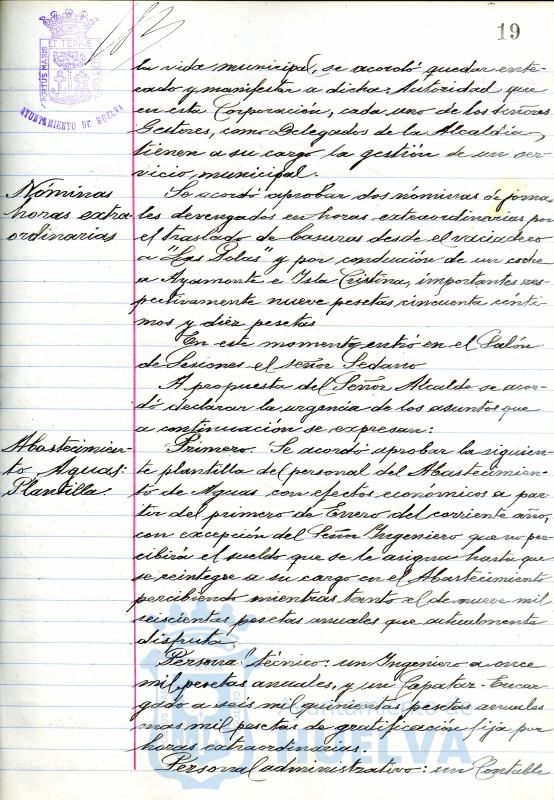 19
PORTUS MARIS ET TERRÆ CUSTODIA
AYUNTAMIENTO DE HUELVA
la vida municipal, se acordó quedar ente-
rado y manifestar a dicha Autoridad que
en esta Corporación, cada uno de los señores
Gestores, como Delegados de la Alcaldía,
tienen a su cargo la gestión de un ser-
vicio municipal.
Nóminas
horas extra-
ordinarias
Se acordó aprobar dos nóminas de jorna-
les devengados en horas extraordinarias por
el traslado de basuras desde el vaciadero
a "Las Polas" y por conducción de un coche
a Ayamonte e Isla Cristina, importantes res-
pectivamente nueve pesetas cincuenta cénti-
mos y diez pesetas
En este momento entró en el Salón
de Sesiones el señor Sedano
A propuesta del Señor Alcalde se acor-
dó declarar la urgencia de los asuntos que
a continuación se expresan:
Abastecimien-
to Aguas:
Plantilla.
Primero. Se acordó aprobar la siguien-
te plantilla del personal del Abastecimien-
to de Aguas con efectos económicos a par-
tir del primero de Enero del corriente año,
con excepción del Señor Ingeniero que no per-
cibirá el sueldo que se le asigna hasta que
se reintegre a su cargo en el Abastecimiento
percibiendo mientras tanto el de nueve mil
seiscientas pesetas anuales que actualmente
disfruta.
Personal técnico: un Ingeniero a once
mil pesetas anuales, y un Capataz-Encar-
gado a seis mil quinientas pesetas anuales
mas mil pesetas de gratificación fija por
horas extraordinarias.
Personal administrativo: un Contable
Ayuntamiento de
HUELVA